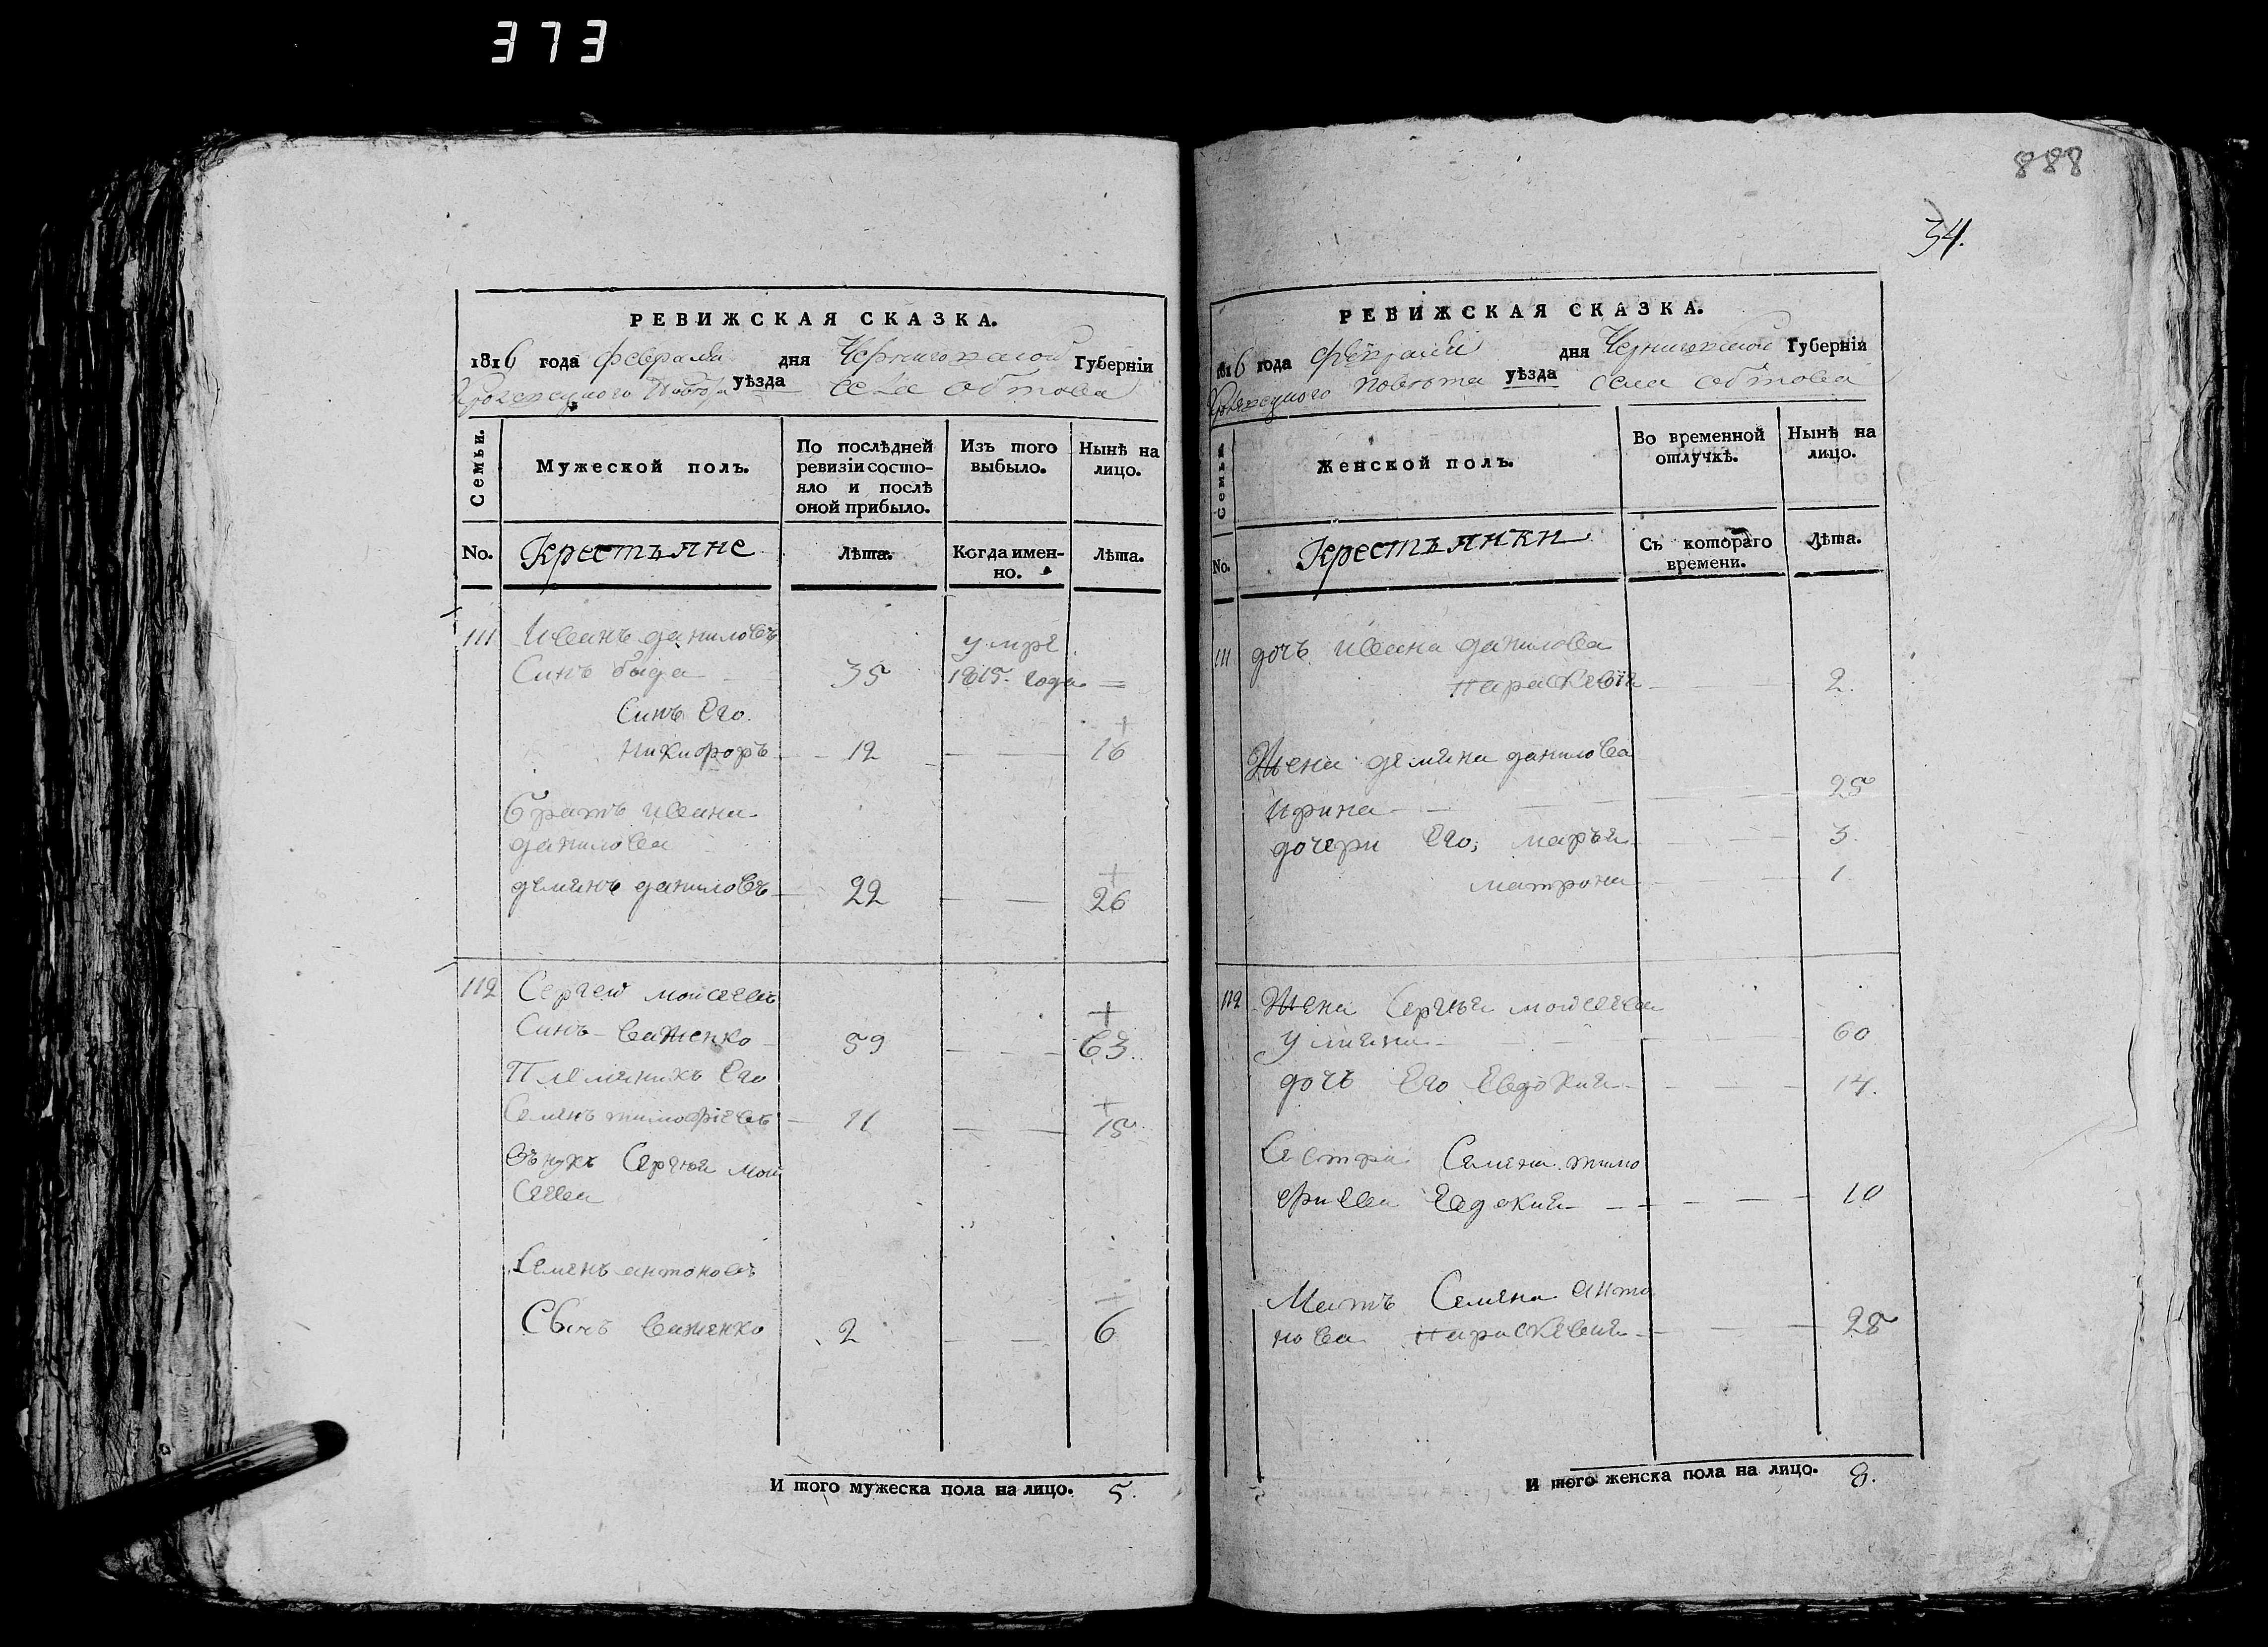 373
888
34.
РЕВИЖСКАЯ СКАЗКА.
1816 года февраля дня Черниговской Губерніи
Кролевецкого Повѣта уѣзда села Обтова
Семьи.
Мужеской полъ.
По послѣдней ревизіи состо-
яло и послѣ
оной прибыло.
Изъ того выбыло.
Нынѣ на лицо.
No.
Крестъяне
Лѣта.
Когда имен-
но.
Лѣта.
111 Иванъ даниловъ умре
Синъ 35 1815 года =
Синъ Его
Никифоръ 12 16
братъ ивана
данилова
демянъ даниловъ 22 26
112 Сергей мойсеевъ
Синъ важенко 59 63
Племяникъ Его
Семенъ тимофіевъ 11 15
Внукъ Сергѣя мой
сеева
Семенъ антоновъ
Синъ важенко 2 6
И того мужеска пола на лицо. 5.
РЕВИЖСКАЯ СКАЗКА.
1816 года февраля дня Черниговской Губерніи
Кролевецкого повѣта уѣзда села обтова
Семьи
Женской полъ.
Во временной отлучкѣ.
Нынѣ на лицо.
No.
Крестъянки
Съ котораго времени.
Лѣта.
111 дочъ ивана данилова
параскевія 2.
Жена демяна данилова
ирина 25
дочери Его, марья 3.
матрона 1
112 Жена Сергѣя мойсеева
улияна 60
дочъ Его Евдокия 14.
Сестра Семена тимо
фиева Евдокия 10
Мать Семена анто
нова параскевия 28
И того женска пола на лицо. 8.